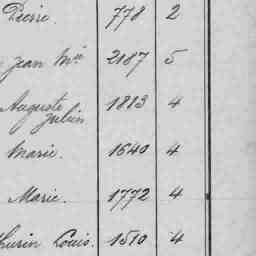 Pierre. 778 2
Jean Mie 2187 5
Auguste 1813 4
Julien
Marie. 1640 4
Marie. 1772 4
thurin Louis. 1510 4